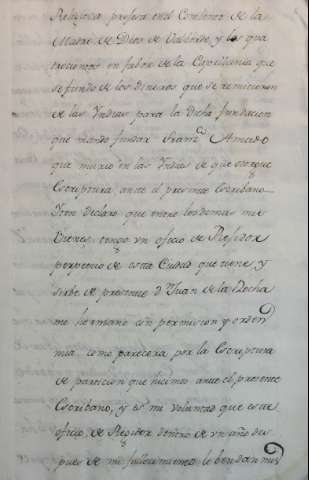 Religiosa profesa en el Convento de la
Madre de Dios de Valverde, y los qua
trecientos en fabor de la Capellania que
se fundo de los dineros que se remitieron
de las Yndias para la dicha fundacion
que mando fundar Amado
que murio en las Yndias de que otorgue
Escriptura ante el presente Escribano
Yten declaro que entre los demas mis
vienes, tengo vn oficio de Refidor
perpetuo de esta Ciudad que tiene, y
sirbe de presente Dn Juan de la Rocha
mi hermano con permision y orden
mia como parecera por la Escriptura
de particion que hicimos ante el presente
Escribano, y es mi voluntad que este
oficio de Regidor dentro de vn año des
pues de mi fallecimiento le bendan mis